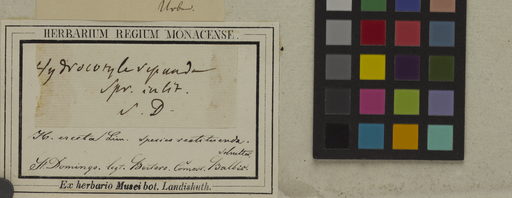 Urban.
HERBARIUM REGIUM MONACENSE.
Hydrocotyle repanda
Spr. in litt.
S. D.
H. erecta Lin. species restituenda.
Schultes
St. Domingo. lgt. Bertero. Comm. Balbis.
Ex herbario Musei bot. Landishuth.